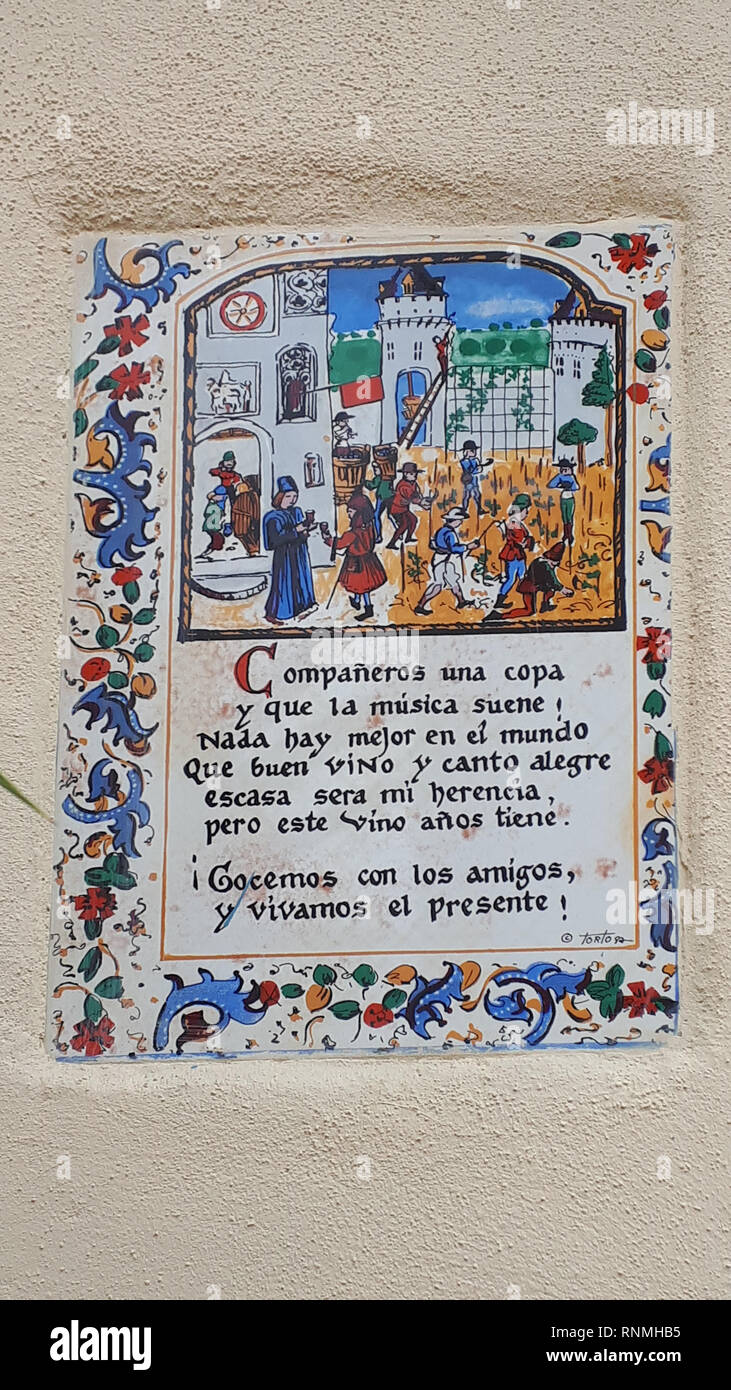 Compañeros una copa
y que la música suene !
Nada hay mejor en el mundo
Que buen viNo y canto alegre
escasa sera mi herencia,
pero este vino años tiene.
¡Gocemos con los amigos,
y vivamos el presente !
© TORTO
alamy
Image ID: RNMHB5
www.alamy.com